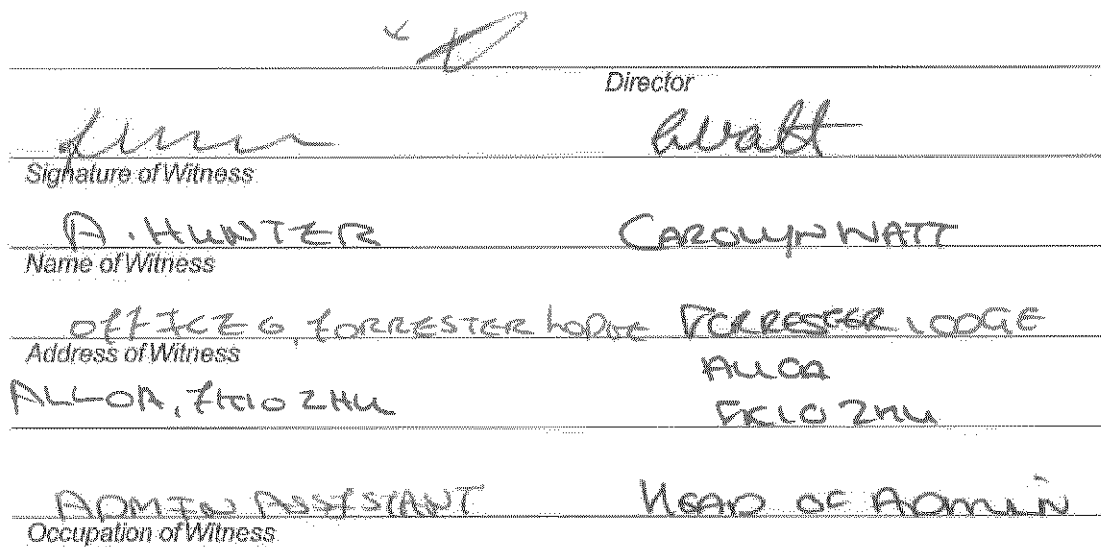 Director
Watt
Signature of Witness
A. HUNTER CAROLYN WATT
Name of Witness
OFFICE 6, FORRESTER LODGE FORRESTER LODGE
Address of Witness
ALLOA
ALLOA, FK10 2HU
FK10 2HU
ADMIN ASSISTANT HEAD OF ADMIN
Occupation of Witness